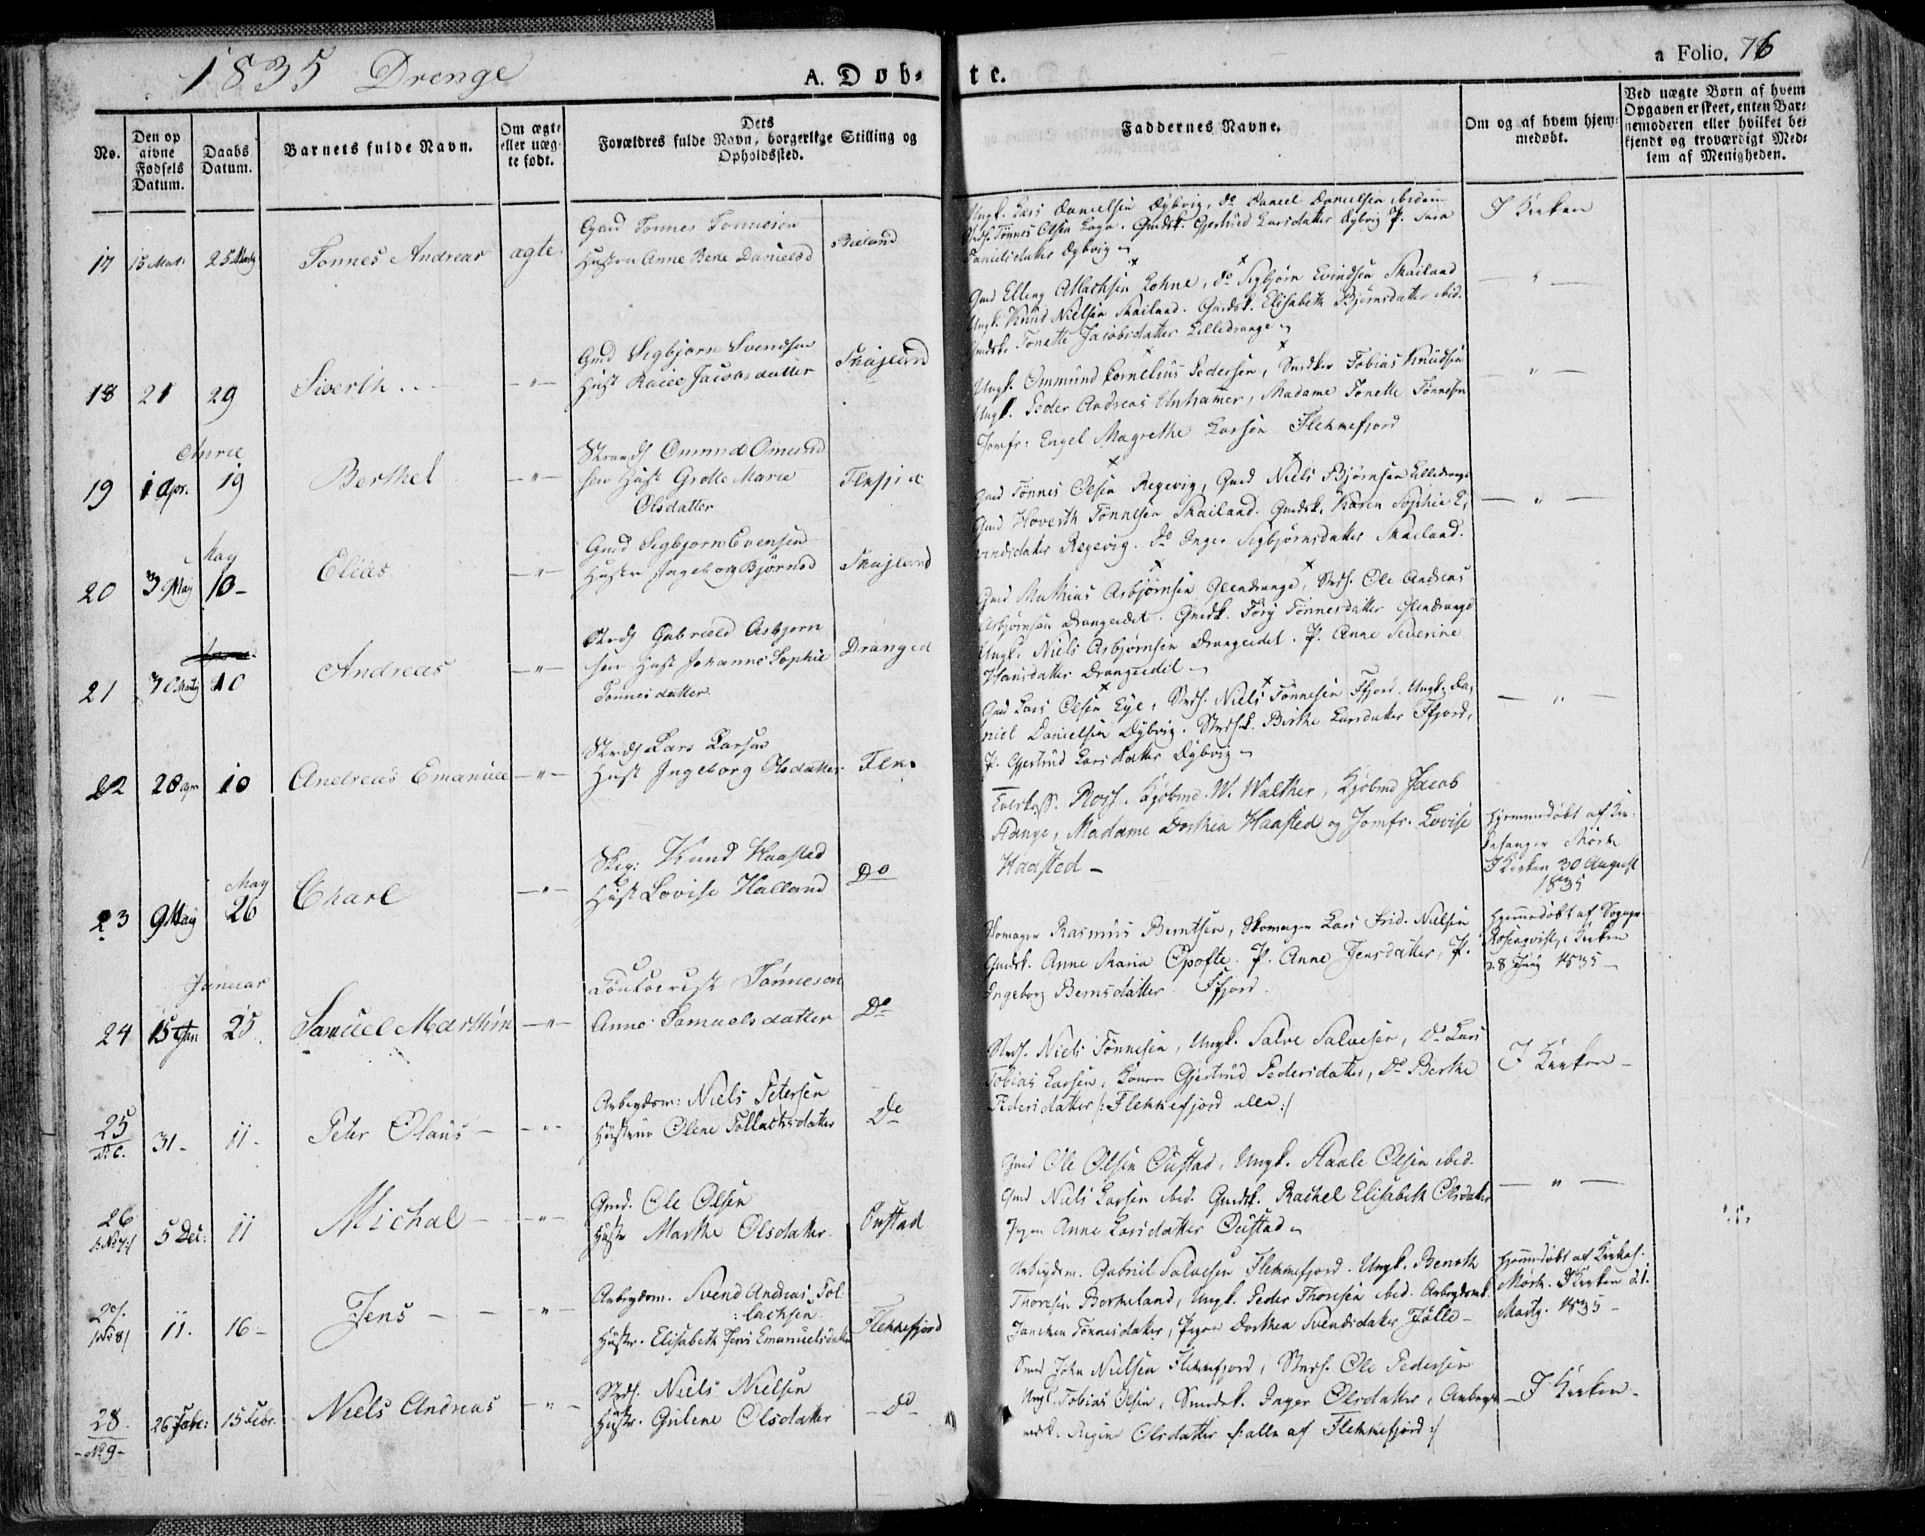 1835 Drenge
A. Døb- te.
a Folio. 76
No.
Den op
givne
Fødsels
Datum.
Daabs
Datum.
Barnets fulde Navn.
Om ægte
eller uæg-
te født.
Dets
Forældres fulde Navn, borgerlige Stilling og
Opholdssted.
Faddernes Navne.
Om og af hvem hjem-
medøbt.
Ved uægte Børn af hvem
Opgaven er skeet, enten Bar-
nemoderen eller hvilket be-
kjendt og troværdigt Med-
lem af Menigheden.
17 15 Mat: 25 Marty Tonnes Andreas ægte
Gaud Tonnes Tonnesen
Hustru Anne Bene Danielsd
Bieland
Ungk. Lars Danielsen Dybvig, do Daniel Danielsen ibidem
Strds. Tønnes Olsen Loga. Gmdsk. Gjertrud Larsdatter Dybvig P. Sara
Danielsdatter Dybvig
I Kirken
18 21 29 Siverth
Gmd Sigbjørn Svendsen
Hust Jacobsdatter
Skajland
Gmd Elling Lohne, do Sigbjørn Evindsen Skailand
Ungk. Knud Nielsen Skailand. Gmdsk. Elisabeth Bjørnsdatter ibid.
Gmdsk. Tonette Jacobsdatter Lilledrange
19 1 Apr. 19 Berthel
Strands Ommund Ommund
sen Hust Grethe Marie
Olsdatter
Flekfjd
Ungk. Ommund Cornelius Pedersen, Snedker Tobias Knudsen
Ungk. Peder Andreas Unhamer, Madame Tonette Tønnesen
Jomfr: Engel Magrethe Larsen Flekkefjord
20 3 May May 10 Elias
Gmd Sigbjørn Evensen
Hustr Ingeborg Bjørnsd
Skajland
Gmd Tønnes Olsen Regevig, Gmd Niels Bjørnsen Lilledrange
Gmd Hoverth Tønnesen Skailand. Gmdsk. Karen Sophie E-
vindsdatter Regevig. do Inger Sigbjørnsdatter Skailand.
21 30 Marty 10 Andreas
Strds Gabrield Asbjorn
sen Hust Johanne Sophie
Tonnesdatter
Dranged
Gmd Mathias Asbjørnsen Glendrange, Strds. Ole Andreas
Asbjørnsen Drangeidet. Gmdsk. Tønnesdatter Glendrange
Ungk. Niels Asbjørnsen Drangeidet. P. Anne Severine
Hansdatter Drangeidet
22 28 apr 10 Andreas Emanuel
Strds Lars Larsen
Hust Ingeborg Olsdatter
Flek.
Gmd Lars Olsen Eye, Strds. Niels Tønnesen Ffjord. Ungk. Da-
niel Danielsen Dybvig. Strdsk. Birthe Larsdatter Ffjord,
P. Gjertrud Larsdatter Dybvig
23 9 May May 26 Charl
Skip: Knud Haasted
Hust Lovise Halland
Do
Kjøbmd W. Walther, Kjøbmd Jacob
Stange, Madame Dorthea Haasted og Jomfr. Lovise
Haasted
Hjemmedøbt af Kir-
kesanger Mørk
I Kirken 30 August
1835
24 15 Jan Januar 25 Samuel Marthin
Tønneson
Anne Samuelsdatter
Do
Skomager Rasmus Berntsen, Skomager Lars Frid. Nielsen
Gmdsk. Anne Maria Opofte. P. Anne Jensdatter, P.
Ingeborg Berntsdatter Ffjord.
Hjemmedøbt af Sogne
Rosenqvist, i Kirken
1835
25 31 11 Peter Olaus
Arbeydsm: Niels Petersen
Hustrue Olene Tollachsdatter
Do
Strds. Niels Tønnesen, Ungk. Salve Salvesen, Do Lars
Tobias Larsen, Konen Gjertrud Pedersdatter, Do Berthe
Pedersdatter /: Flekkefjord alle :/
I Kirken
26 /:No7:/ 5 Dec: 11 Michal
Gmd. Ole Olsen
Hustr Marthe Olsdatter
Oustad
Gmd Ole Olsen Oustad, Ungk. Staale Olsen ibid.
Gmd Niels Larsen ibid. Gmdsk. Rachel Elisabeth Olsdatter
Pigen Anne Larsdatter Oustad
27. /No8/ 11. 16 Jens
Arbeydsm. Svend Andreas Tol-
lachsen
Hustr. Elisabeth Jens Emanuelsdatter
Flekkefjord
Arbeydsm. Gabriel Salvesen Flekkefjord. Ungk. Bernth
Thoresen Berkeland, Ungk. Peder Thoresen ibid. Arbeydsmk.
Janeken Tønnesdatter, Pigen Dorthea Svendsdatter Fjølle
Hjemmedøbt af Kirkes.
Mørk. I Kirken d 1.
Marty. 1835
28 No 9 26 15 Febr. Niels Andreas
Strds. Niels Nielsen
Hustr. Gulene Olsdatter
do
Smed John Nielsen Flekkefjord, Strds. Ole Pedersen
Ungk Tobias Olsen, Smedsk. Inger Olsdatter, Arbeyds-
mdsk. Regine Olsdatter /: alle af Flekkefjord :/
I Kirken